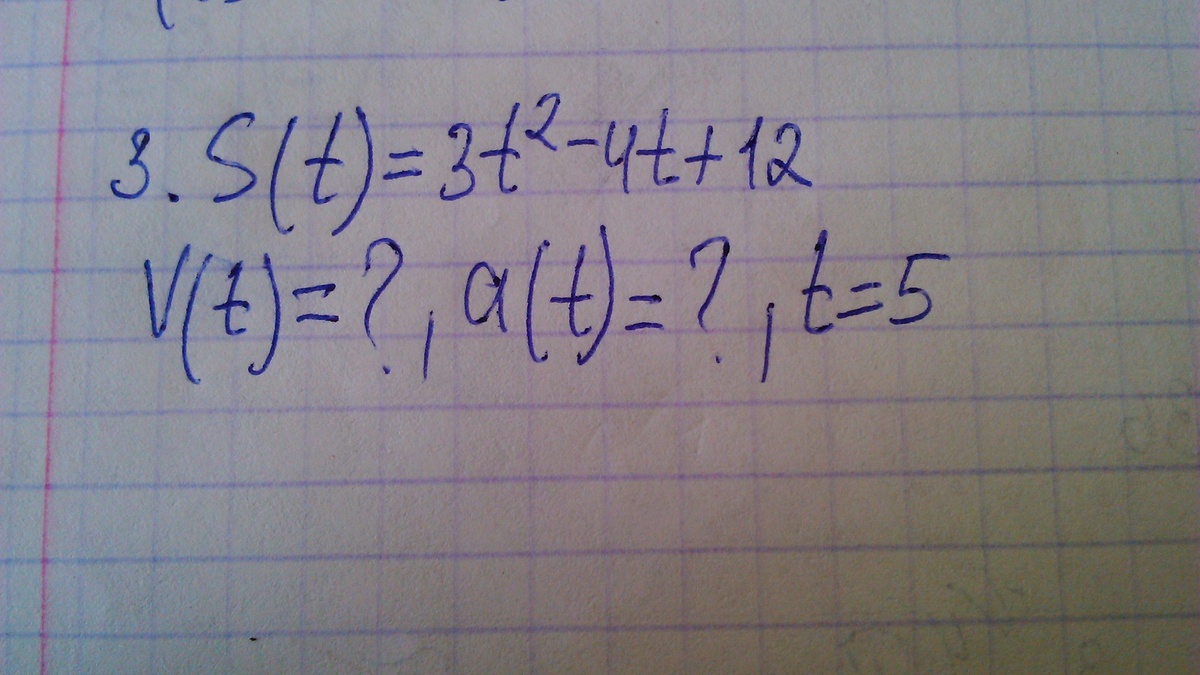 3. S(t)=3t²-4t+12
V(t)=?, a(t)=?, t=5